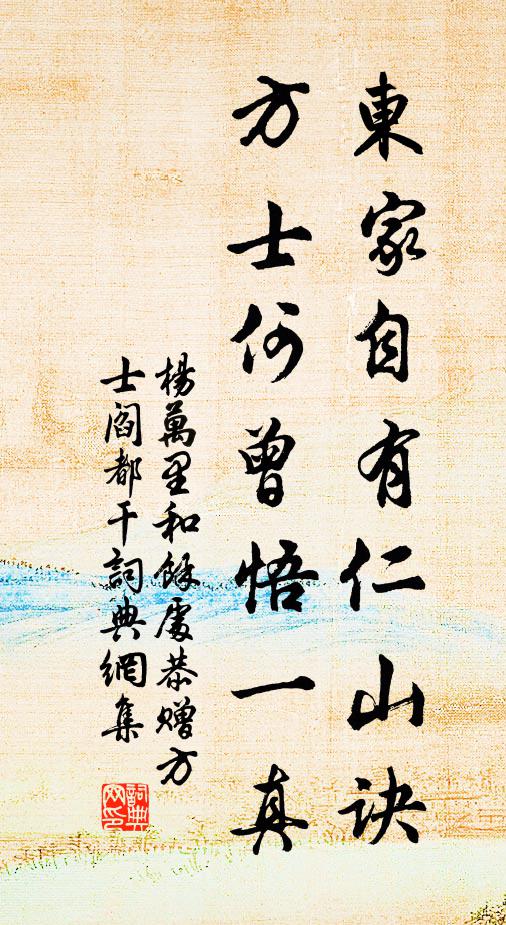 東家自有仁山訣
方士何曾悟一真
楊萬里和餘處恭贈方
士閻都干詞典網集
詞典
网印